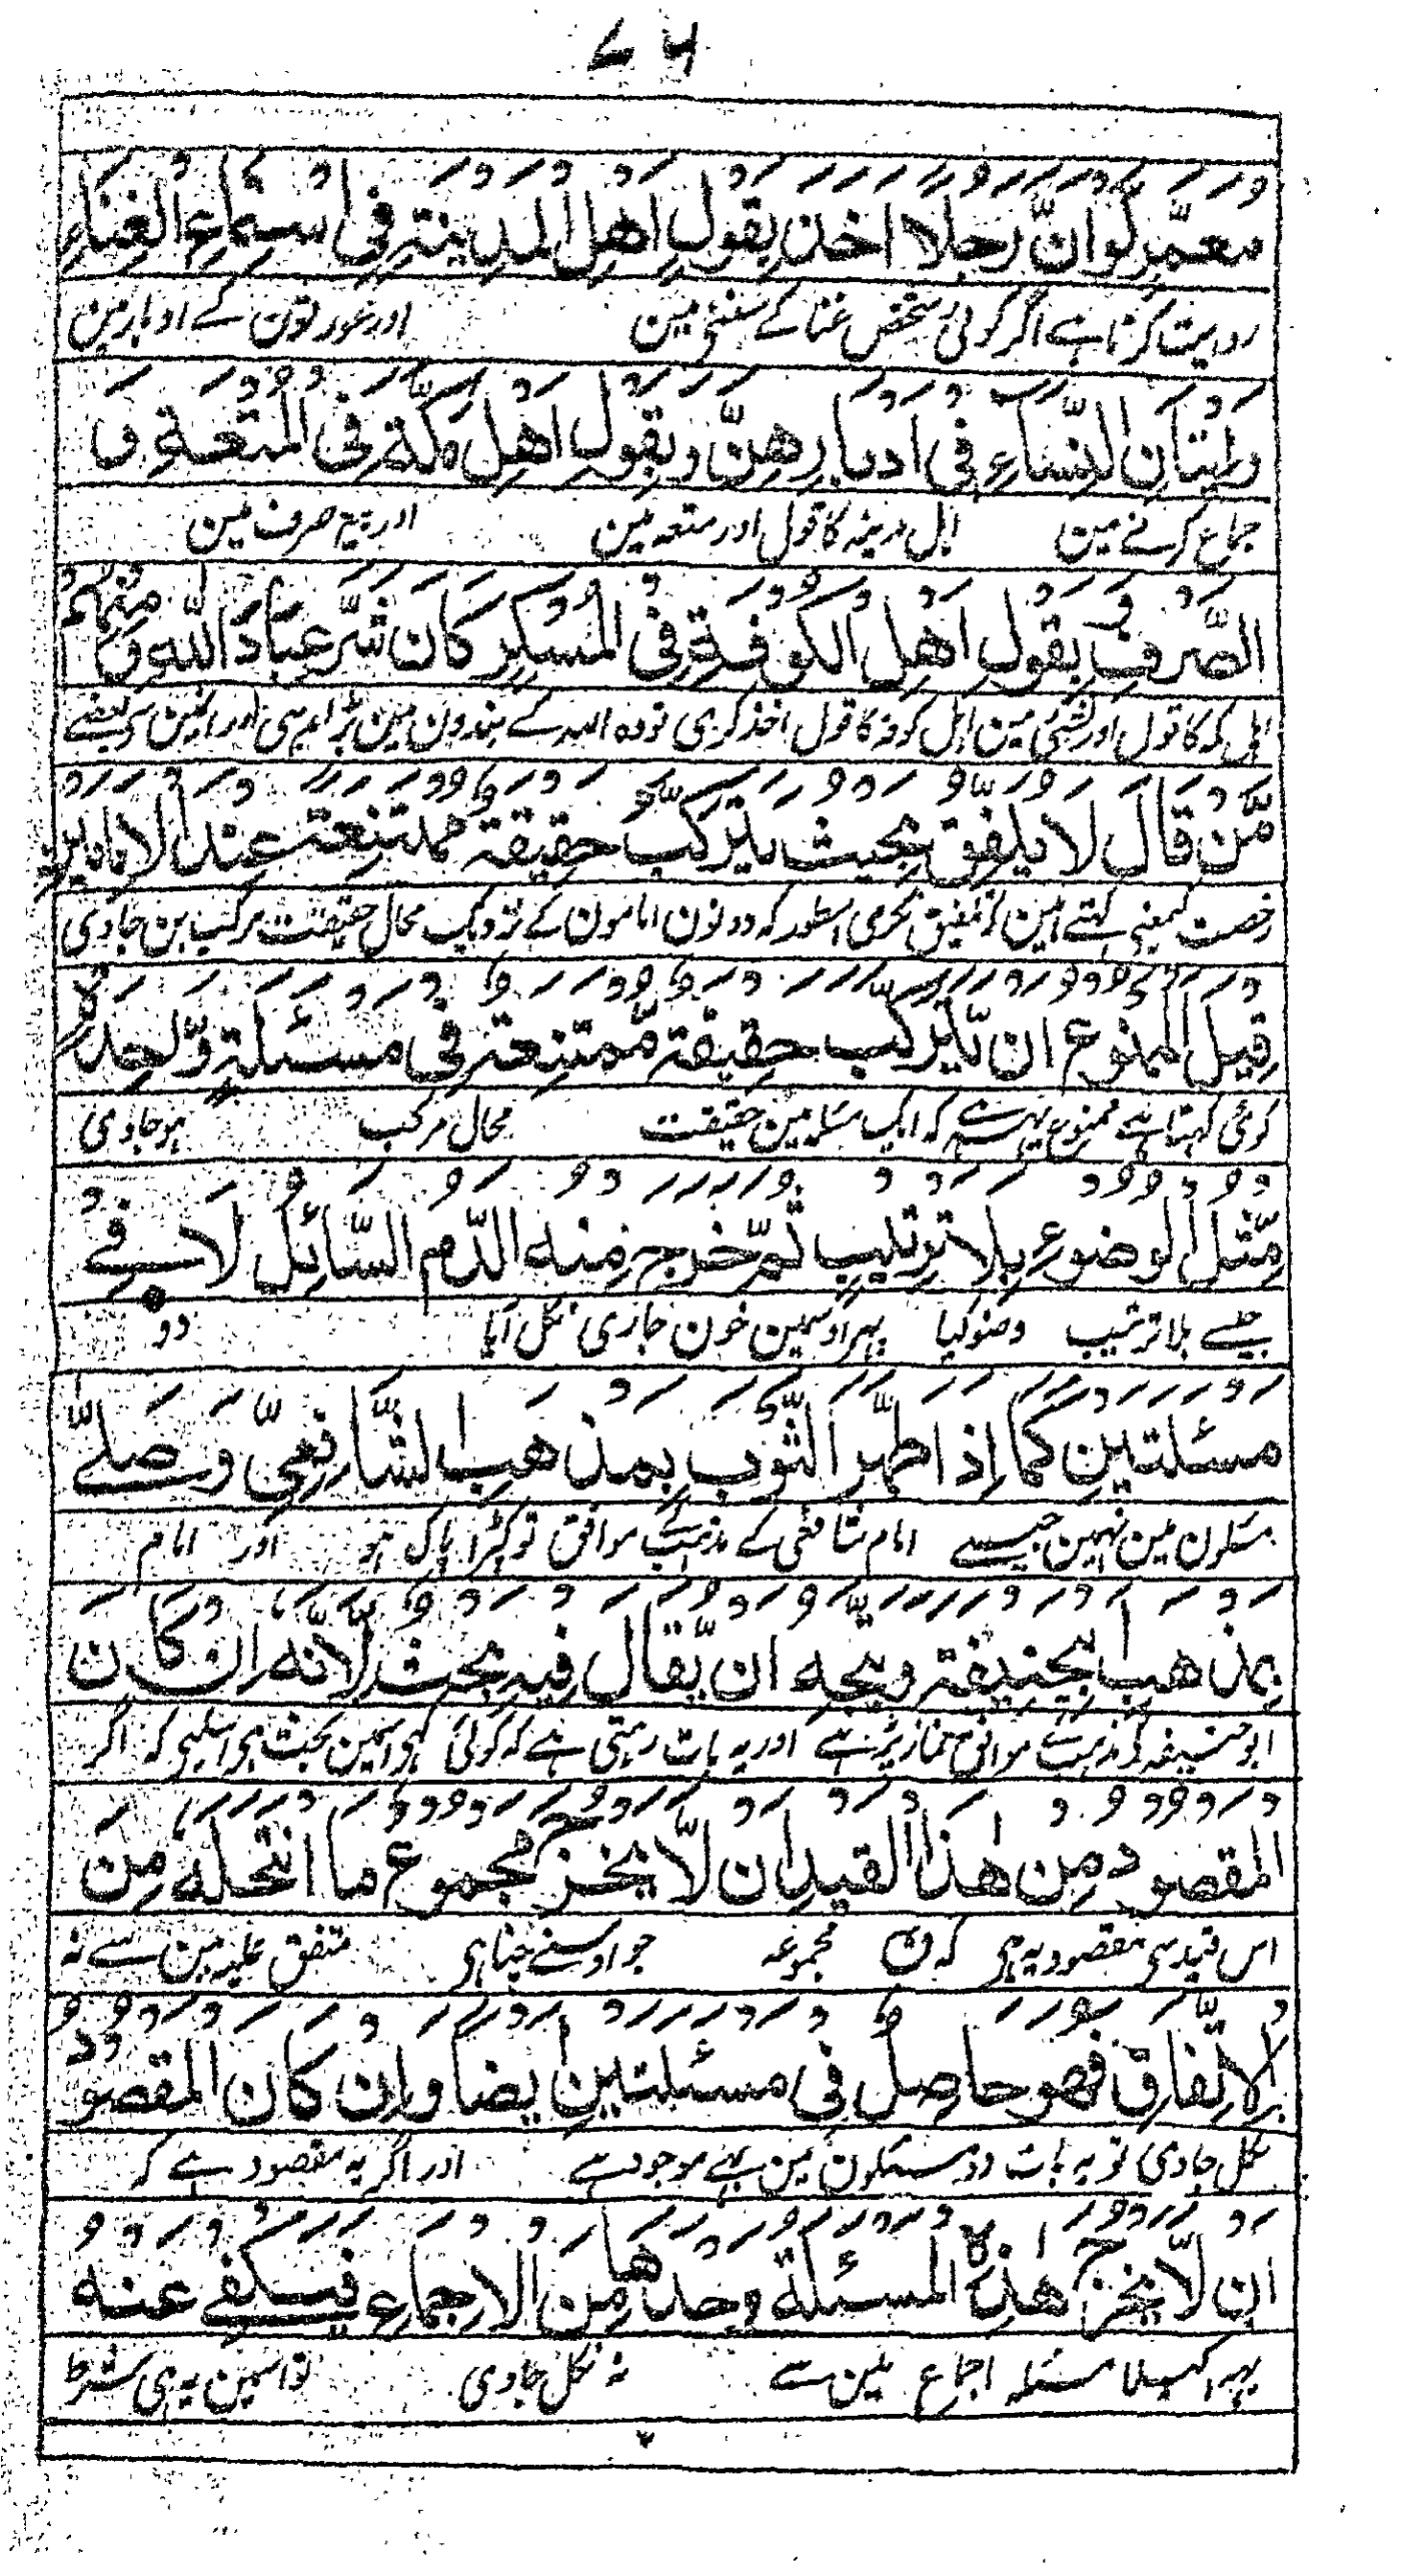 ۷۶
معمّرٍ لو انّ رجلا اخذ بقول اهل المدينة فى استماع الغناء
روایت کرتا ہے اگر کوئی شخص غنا کے سننے مین اور عورتون کے ادبار مین
و اتيان النّساء فى ادبارهنّ وبقول اهل مكّة فى المتعة و
جماع کرنے مین اہل مدینہ کا قول اور متعہ مین اور بیع صرف مین
الصّرف بقول اهل الكوفة فى المسكر كان شرّ عباد الله و منهم
اہل مکہ کا قول اور نشئی مین اہل کوفہ کا قول اخذ کری تو وہ اللہ کے بندون مین بڑا ہی اور انمین سی بعضے
مّن قال لا يلفق بحيث يتركّب حقيقة ممتنعة عند الامامين
رخصت کہتے ہین کہ تلفیق نکری اسطور کہ دونون امامون کے نزدیک محال حقیقت مرکب بن جاوی
قيل الممنوع ان يّتركّب حقيقة مّمتنعة فى مسئلة وّاحدة
کوئی کہتا ہے ممنوع یہ ہے کہ ایک مسئلہ مین حقیقت محال مرکب ہو جاوی
مّثل الوضوء بلا ترتيب ثمّ خرج منه الدّم السّائل لا فى
جیسے بلا ترتیب وضو کیا پہر اوسمین خون جاری نکل آیا دو
مسئلتين كما اذا طهّر الثّوب بمذهب الشّافعىّ وصلّے
مسئلون مین نہین جیسے امام شافعی کے مذہب کے موافق تو کپڑا پاک ہو اور امام
بمذهب ابيحنيفة ويتجه ان يّقال فيه بحث لانّه ان كان
ابو حنیفہ کے مذہب کے موافق نماز پڑہے اور یہ بات رہتی ہے کہ کوئی کہے اسمین بحث ہی اسلیی کہ اگر
المقصود من هذا القيد ان لّا يخرج مجموع ما انتحله من
اس قید سی مقصود یہ ہی کہ مجموعہ جو اوسنے چنا ہی متفق علیہ مین سے نہ
الاتّفاق فهو حاصل فى مسئلتين ايضا وان كان المقصود
نکل جاوی تو یہ بات دو مسئلون مین بہی موجود ہے اور اگر یہ مقصود ہے کہ
ان لّا يخرج هذه المسئلة وحدها من الاجماع فيكفے عنه
یہہ اکیلا مسئلہ اجماع مین سے نہ نکل جاوی تو اسمین یہ ہی شرط